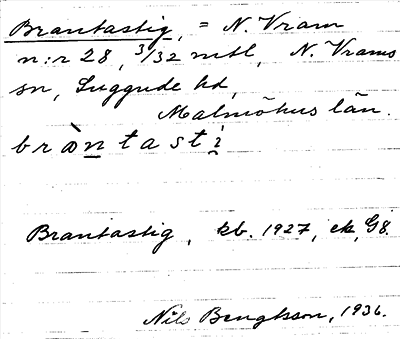 Brantastig, = N. Vram
n:r 28, 3/32 mtl, N. Vrams
sn, Luggude hd,
Malmöhus län.
bràntasti
Brantastig, kb. 1927, ek, G8.
Nils Bengtsson, 1936.